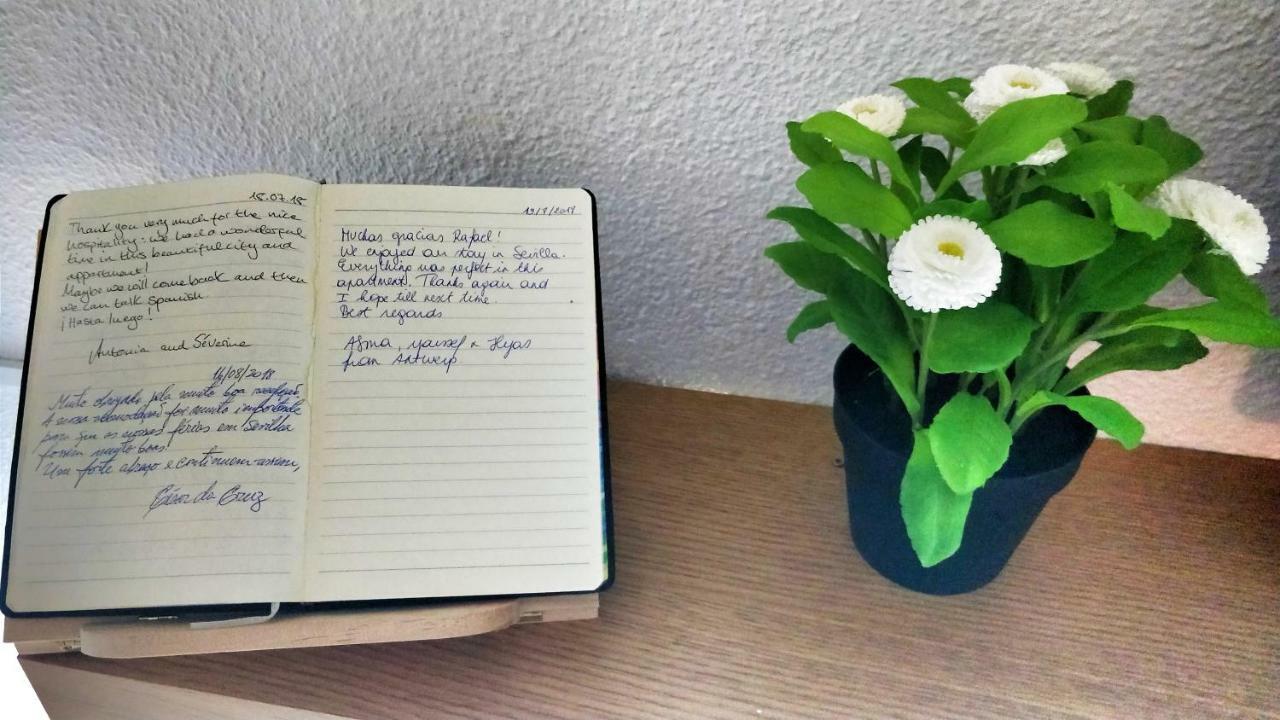 18.07.18
Thank you very much for the nice
hospitality: we had a wonderful
time in this beautiful city and
appartment!
Maybe we will come back and then
we can talk spanish.
¡Hasta luego!
Antonia and Séverine
14/08/2018
Muito obrigado pela muito boa recepção.
A nossa  foi muito importante
para que as nossas férias em Sevilha
fossem muito boas.
Um forte abraço e continuem assim,
César da Cruz
19/9/2018
Muchas gracias Rafael!
We enjoyed our stay in Sevilla.
Everything was perfect in this
apartment. Thanks again and
I hope till next time.
Best regards
Asma, Youssef & Ilyas
from Antwerp